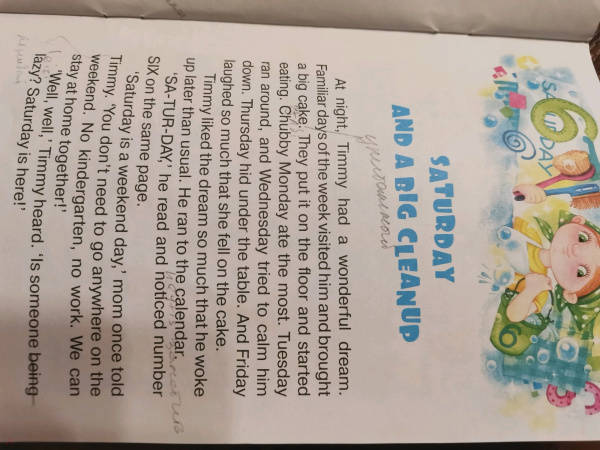 6
SATURDAY
6
SATURDAY
AND A BIG CLEANUP
At night, Timmy had a wonderful dream.
Familiar days of the week visited him and brought
a big cake. They put it on the floor and started
eating. Chubby Monday ate the most. Tuesday
ran around, and Wednesday tried to calm him
down. Thursday hid under the table. And Friday
laughed so much that she fell on the cake.
Timmy liked the dream so much that he woke
up later than usual. He ran to the calendar.
'SA-TUR-DAY,' he read and noticed number
SIX on the same page.
'Saturday is a weekend day,' mom once told
Timmy. 'You don't need to go anywhere on the
weekend. No kindergarten, no work. We can
stay at home together!'
'Well, well,' Timmy heard. 'Is someone being
lazy? Saturday is here!'